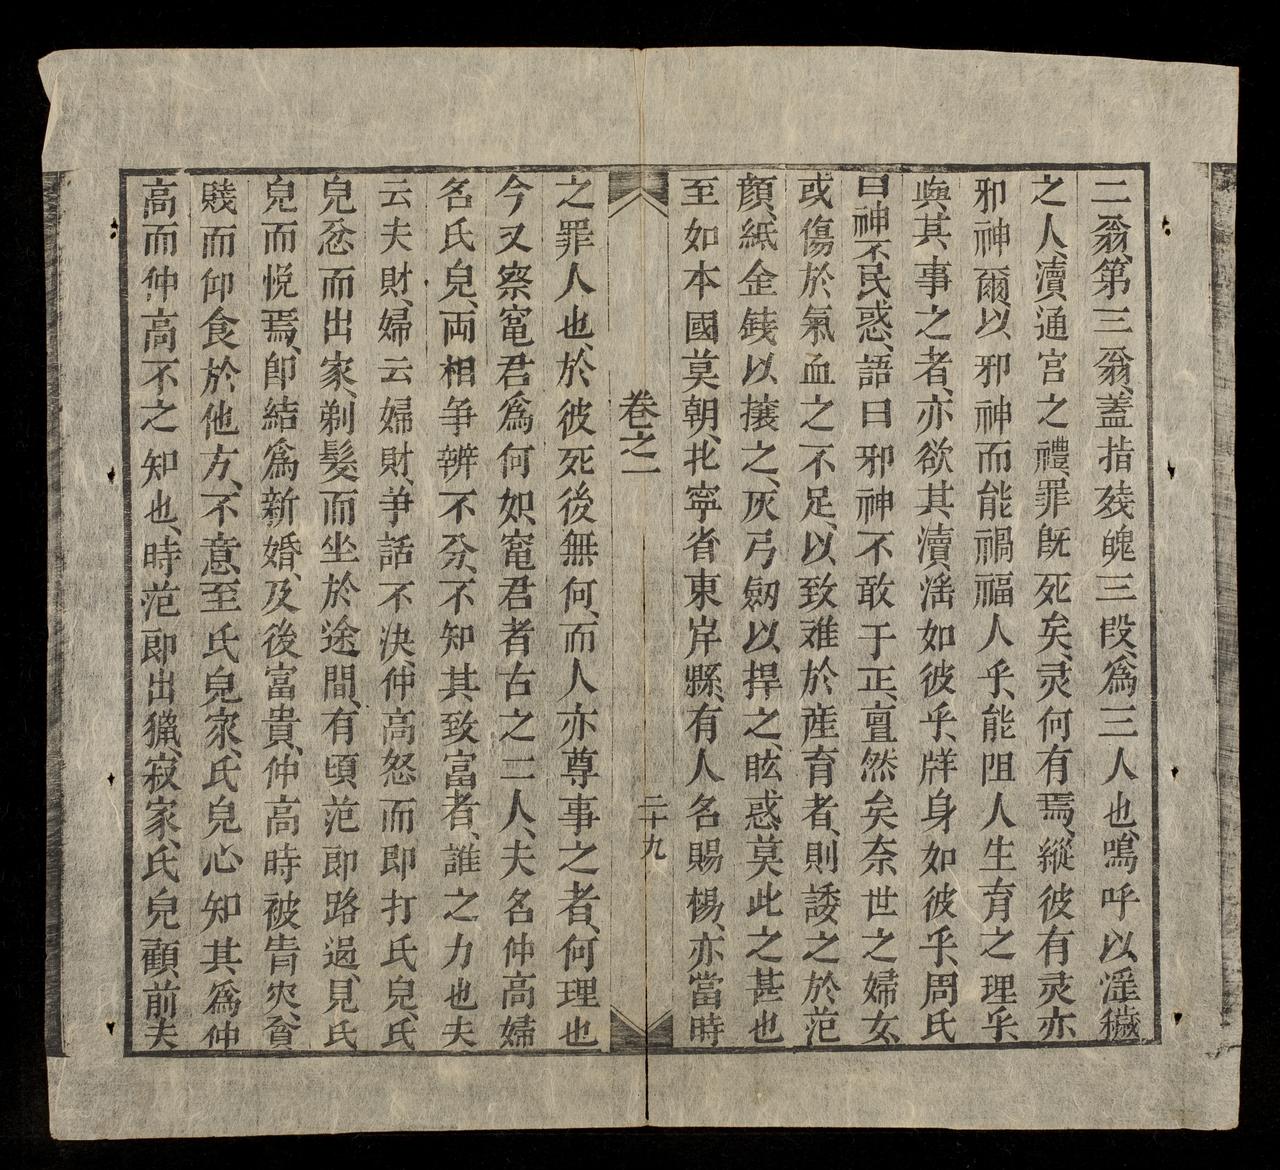 二翁、第三三翁、蓋指殘魄三段、爲三人也、嗚呼以滛穢
之人、瀆通宫之禮、罪既死矣、灵何有焉、縱彼有灵亦
邪神爾、以邪神而能禍福人乎、能阻人生育之理乎、
與其事之者、亦欲其瀆滛如彼乎、牂身如彼乎、周氏
曰神不民惑、語曰邪神不敢于正、亶然矣奈世之婦女、
或傷於氣血之不足、以致难於産育者、則諉之於范
顔、紙金銭以攘之、灰弓劒以捍之、眩惑莫此之甚也
至如本國莫朝、北寧省東岸縣、有人名賜楊、亦當時
卷之一
二十九
之罪人也、於彼死後無何、而人亦尊事之者、何理也
今又察竃君爲何如、竃君者古之二人、夫名仲高婦
名氏皃、両相争辨不分、不知其致富者、誰之力也夫
云夫財、婦云婦財、爭話不決、仲高怒而即打氏皃、氏
皃忿而出家、剃髮而坐於途間、有頃范即路過、見氏
皃而悦焉、即結爲新婚、及後富貴、仲高時被眚灾、貧
賤而仰食於他方、不意至氏皃家、氏皃心知其爲仲
高而仲高不之知也、時范即出猟、寂家、氏皃顧前夫